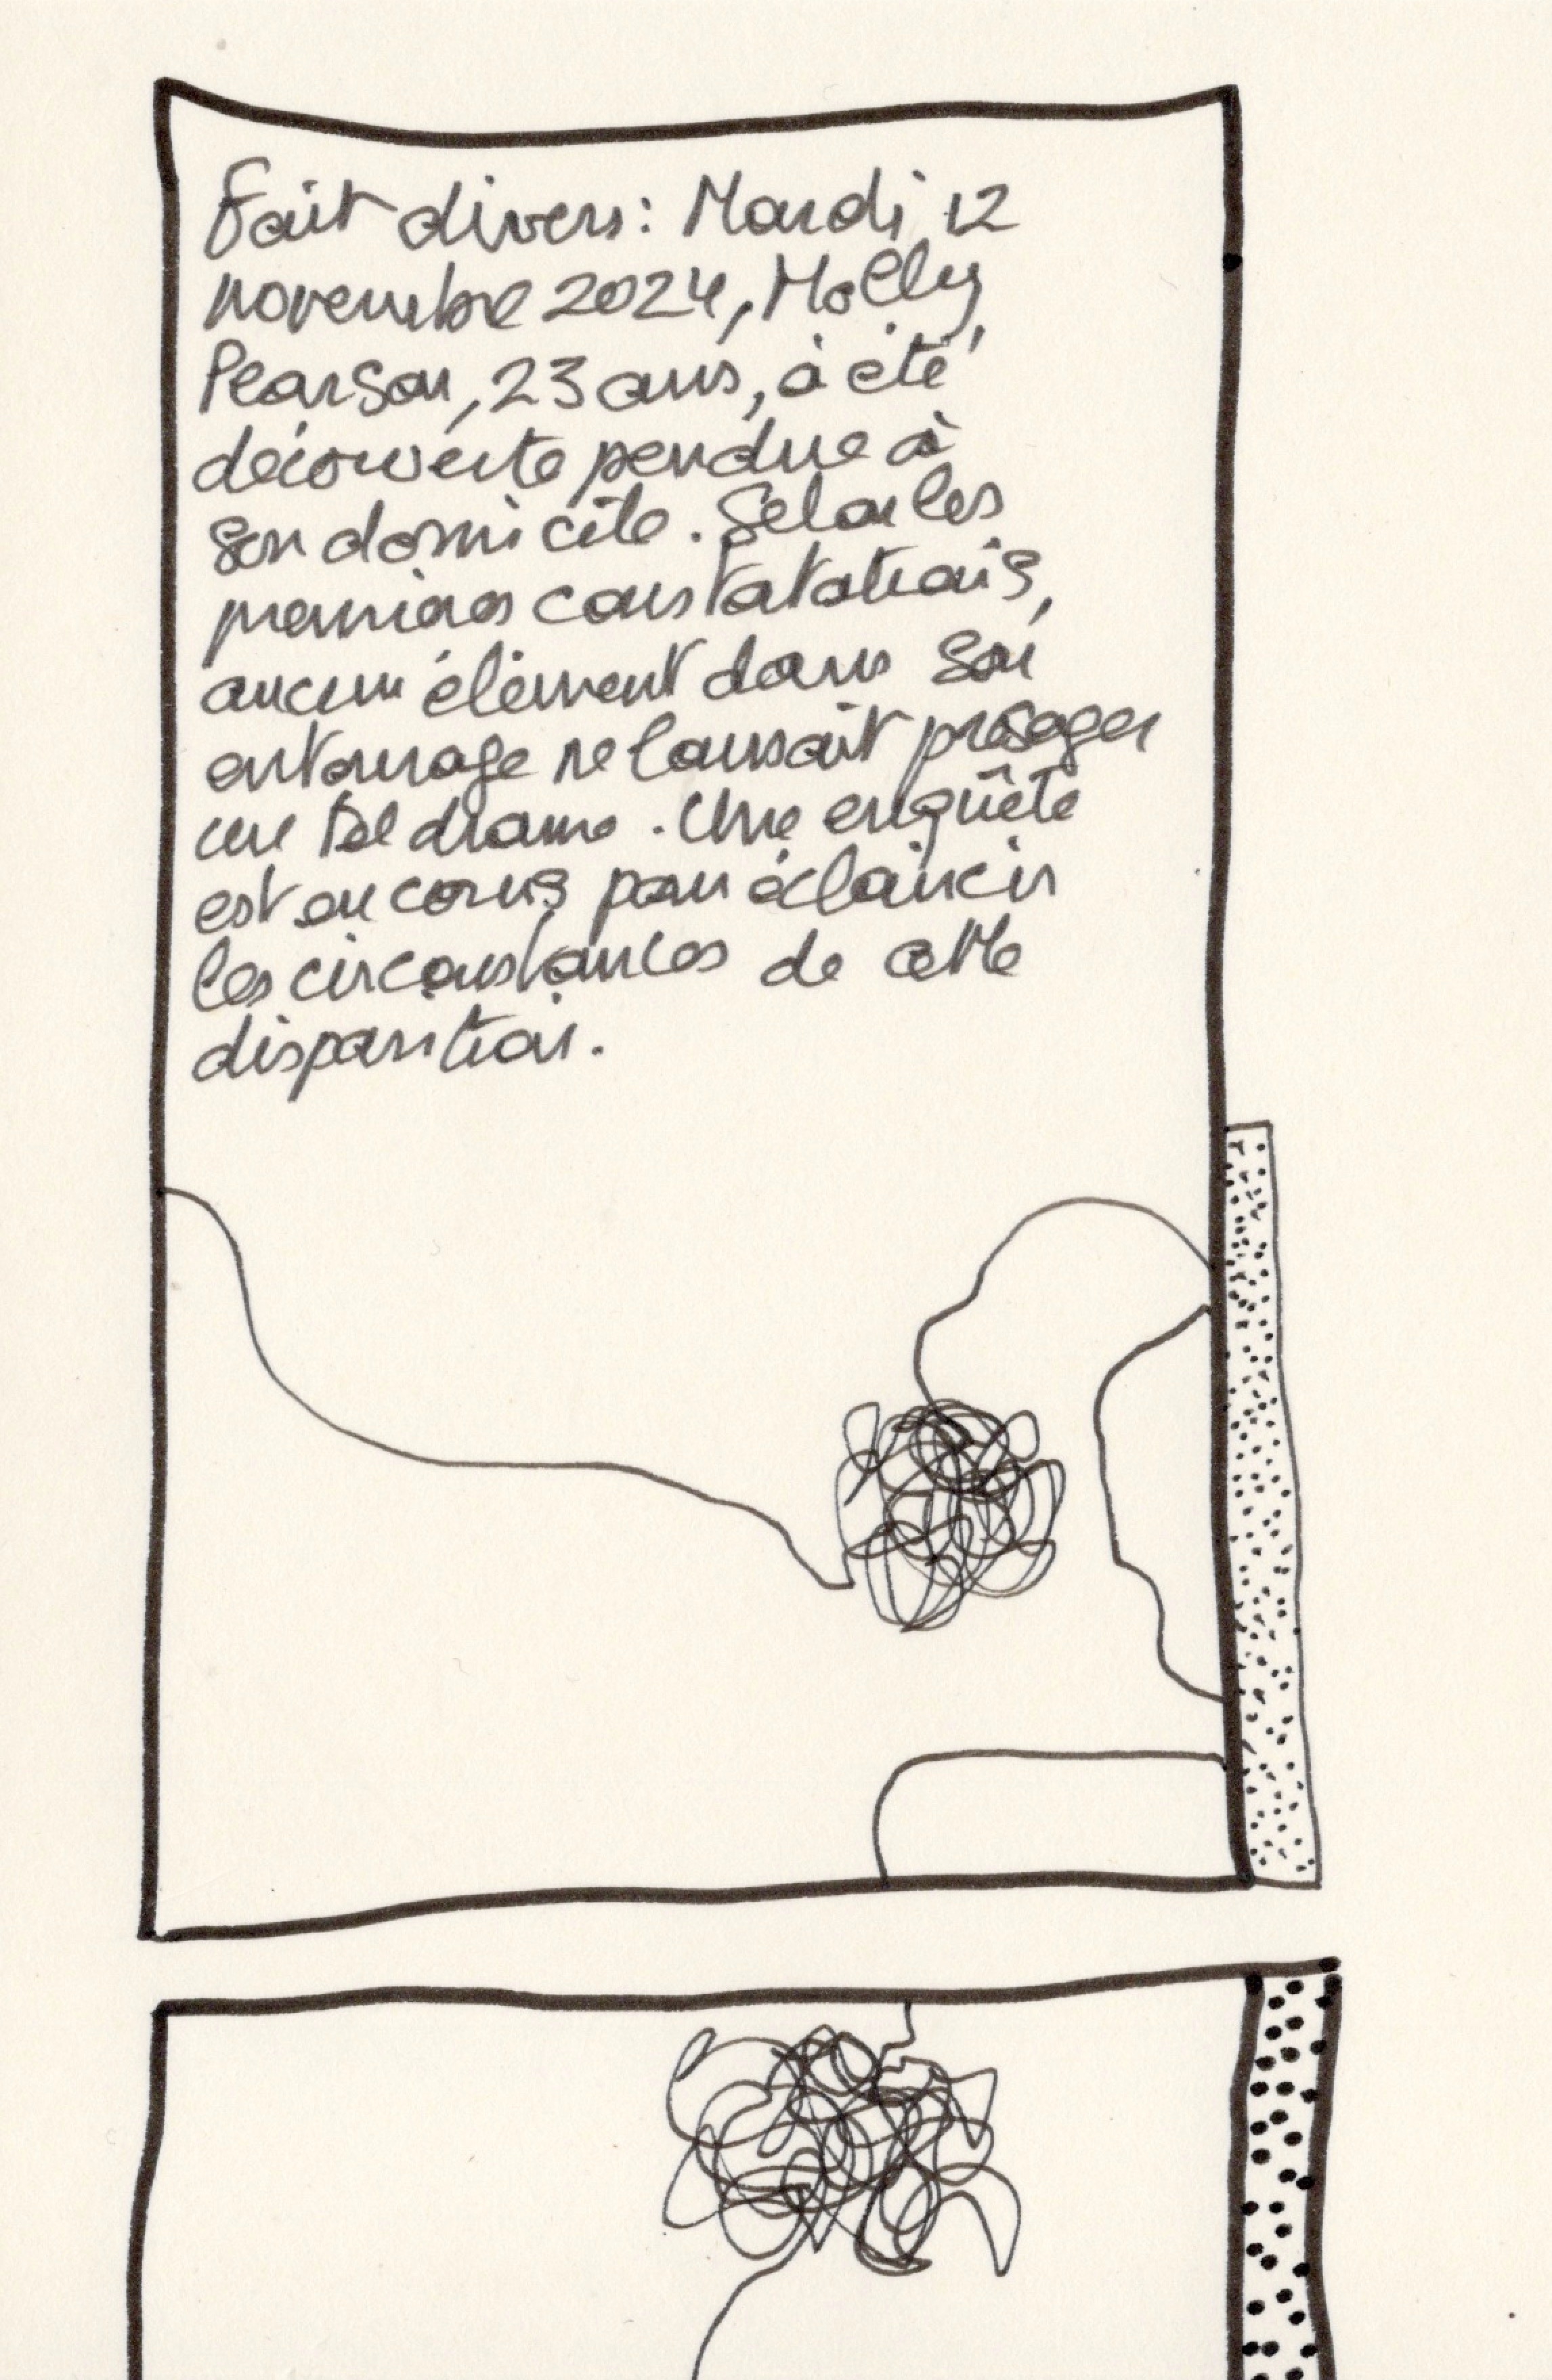 Fait divers: Mardi 12
novembre 2024, Molly
Pearson, 23 ans, à été
découverte pendue à
son domicile. Selon les
premières constatations,
aucun élément dans son
entourage ne laissait présager
un tel drame. Une enquête
est en cours pour éclaircir
les circonstances de cette
disparition.